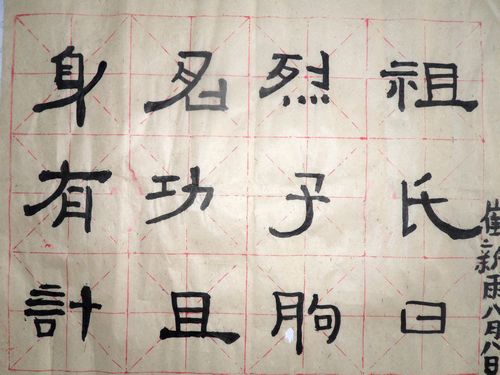 祖氏曰
烈子朐
名功且
身有計
崔新雨八月八日